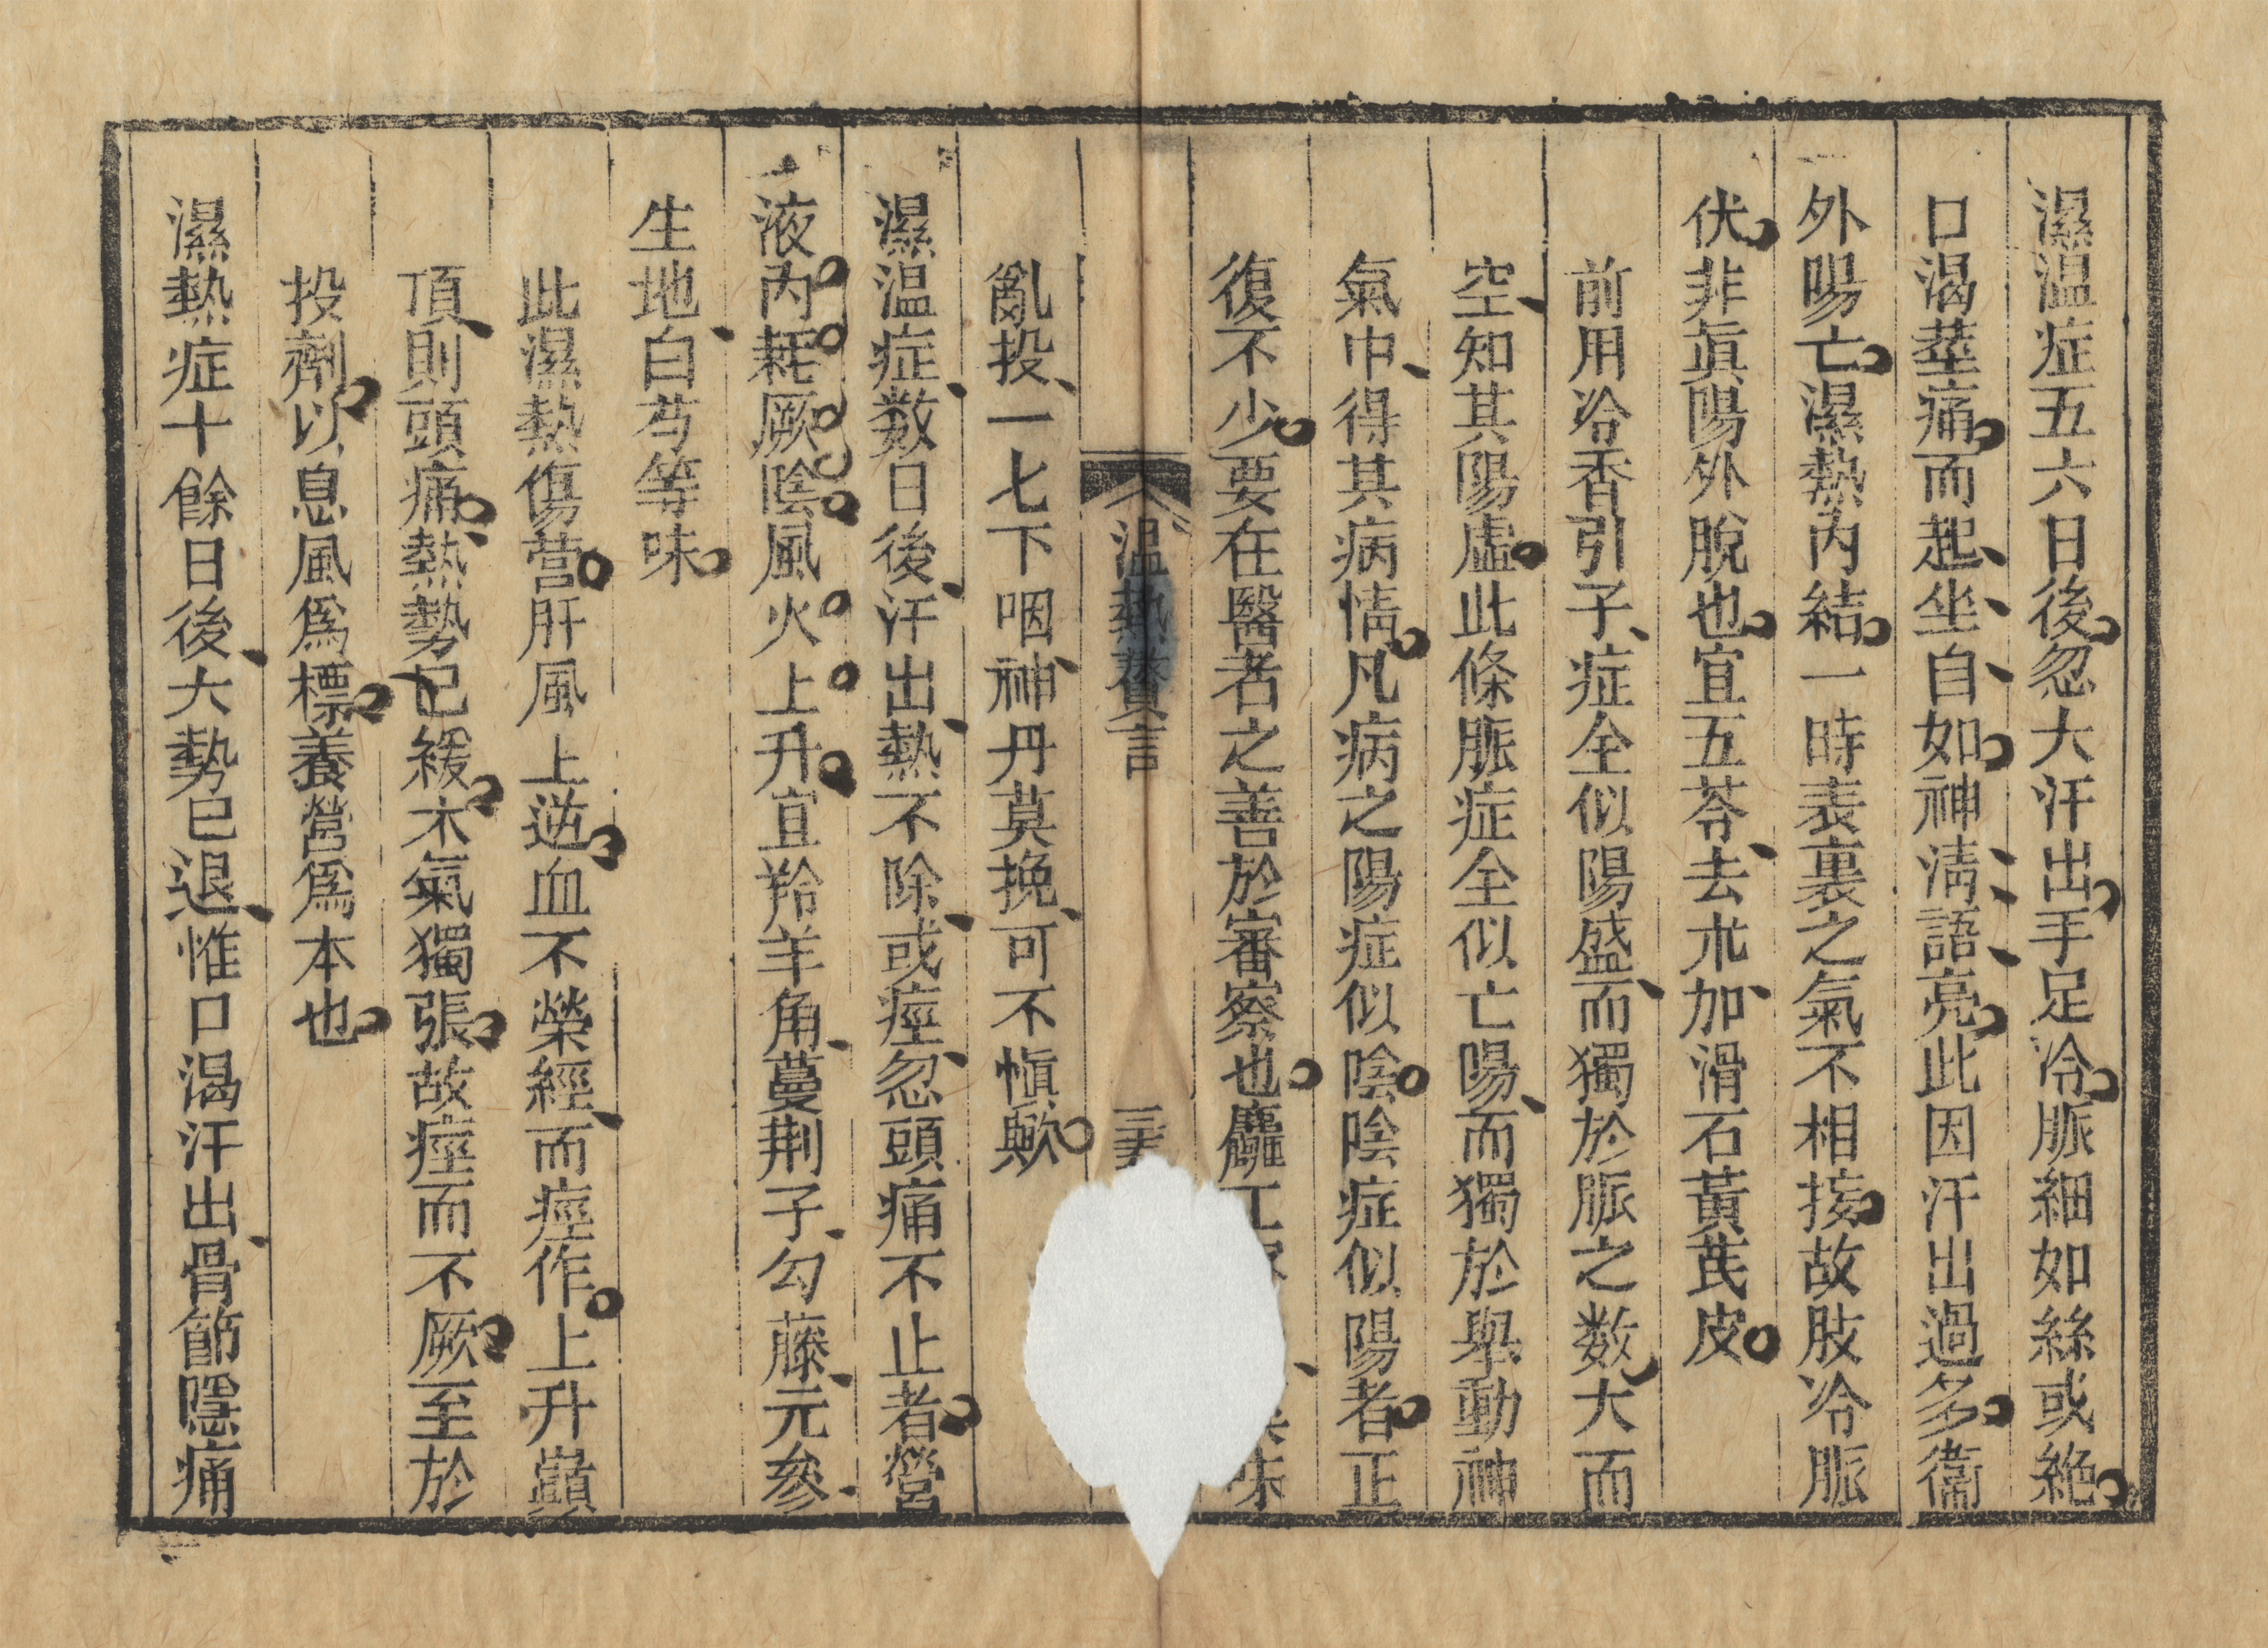 濕温症五六日後忽大汗出手足冷脈細如絲或絶
口渴莖痛而起坐自如神清語亮此因汗出過多衞
外陽亡濕熱內結一時表裏之氣不相接故肢冷脈
伏非眞陽外脫也宜五苓去朮加滑石黃芪皮
前用冷香引子症全似陽盛而獨於脈之数大而
空知其陽虛此條脈症全似亡陽而獨於舉動神
氣中得其病情凡病之陽症似陰陰症似陽者正
復不少要在醫者之善於審察也麤工味
温熱贅言
亂投一七下咽神丹莫挽可不愼歟
濕温症数日後汗出熱不除或痙忽頭痛不止者營
液內耗厥陰風火上升宜羚羊角蔓荆子勾藤元參
生地白芍等味
此濕熱傷营肝風上逆血不榮經而痙作上升巓
頂則頭痛熱勢已緩木氣獨張故痙而不厥至於
投劑以息風爲標養營爲本也
濕熱症十餘日後大勢已退惟口渴汗出骨節隱痛